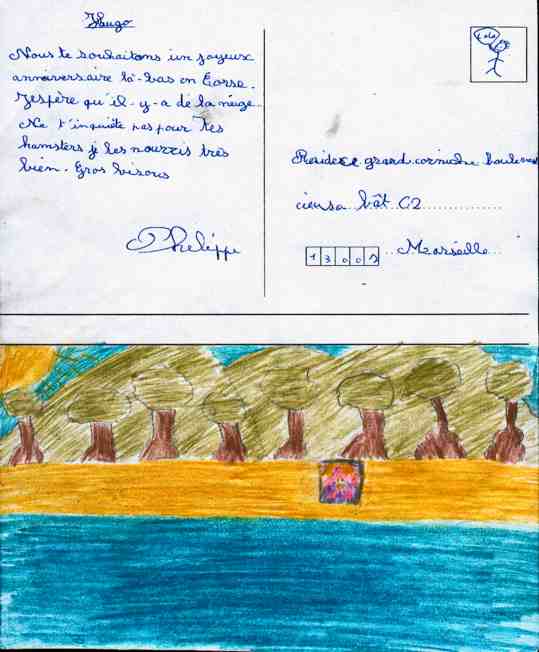 Hugo
Nous te souhaitons un joyeux
anniversaire là-bas en Corse.
J'espère qu'il-y-a de la neige.
Ne t'inquiète pas pour tes
hamsters je les nourris très
bien. Gros bisous
Philippe
grand cornniche
bât C2
Marseille